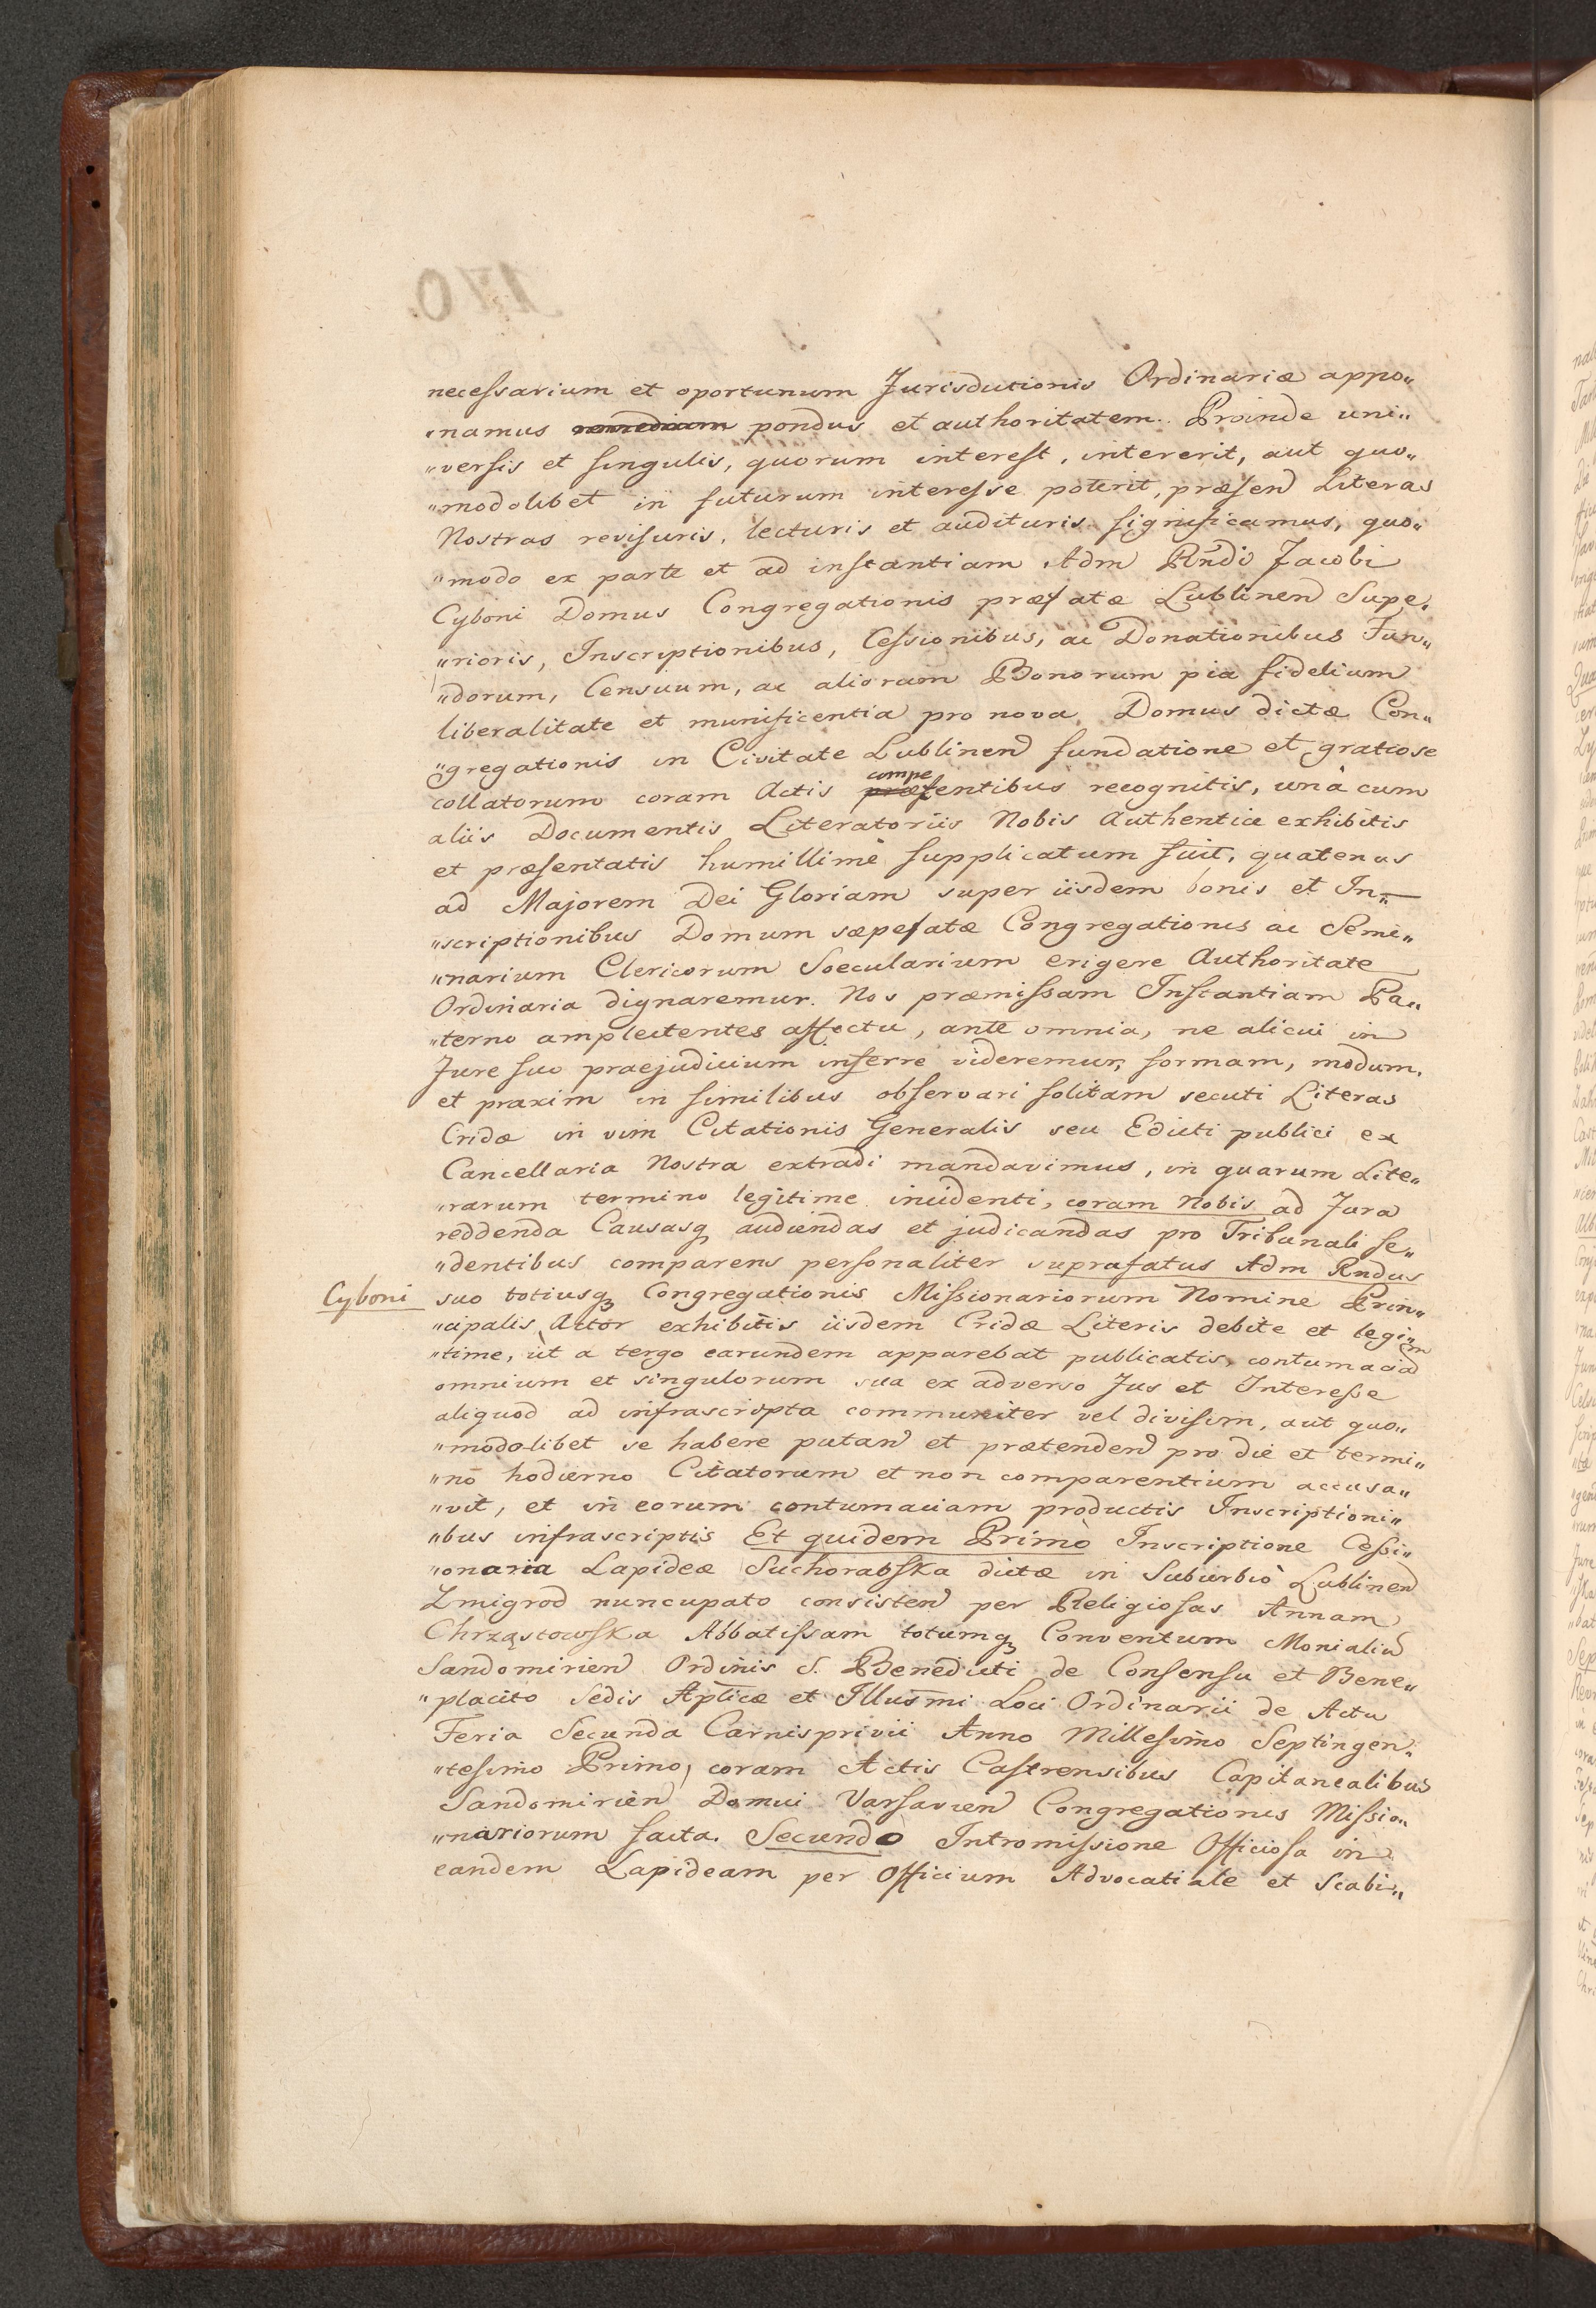 necessarium et oportunum Jurisductionis Ordinariæ appo„
„namus remedium pondus et authoritatem. Proinde uni„
„versis et singulis, quorum interest, intererit, aut quo„
„modolibet in futurum interesse poterit, præsen Literas
Nostras revisuris, lecturis et audituris significamus, quo„
„modo ex parte et ad instantiam Adm Rndi Jacobi
Cyboni Domus Congregationis præfatæ Lublinen Supe„
„rioris, Inscriptionibus, Cessionibus, ac Donationibus Fun„
„dorum, Censuum, ac aliorum Bonorum pia fidelium
liberalitate et munificentia pro nova Domus dictæ Con„
„gregationis in Civitate Lublinen fundatione et gratiose
compe
collatorum coram Actis præsentibus recognitis, unà cum
aliis Documentis Literatoriis Nobis Authentice exhibitis
et præsentatis humillimè supplicatum fuit, quatenus
ad Majorem Dei Gloriam super iisdem bonis et In„
„scriptionibus Domum sæpefatæ Congregationis ac Semi„
„narium Clericorum Soecularium erigere Authoritate
Ordinaria dignaremur. Nos præmissam Instantiam Pa„
„terno amplectentes affectu, ante omnia, ne alicui in
Jure suo praejudicium inferre videremur, formam, modum,
et praxim in similibus observari solitam secuti Literas
Cridæ in vim Citationis Generalis seu Edicti publici ex
Cancellaria Nostra extradi mandavimus, in quarum Lite„
„rarum termino legitime incidenti, coram Nobis ad Jura
reddenda Causasq audiendas et judicandas pro Tribunali se„
„dentibus comparens personaliter suprafatus Adm Rndus
Cyboni suo totiusq Congregationis Missionariorum Nomine Prin„
„cipalis Actor exhibitis iisdem Cridæ Literis debite et legi„
„time, ut a tergo earundem apparebat publicatis, contumaciam
omnium et singulorum sua ex adverso Jus et Interesse
aliquod ad infrascripta communiter vel divisim, aut quo„
„modolibet se habere putan et prætenden pro die et termi„
„no hodierno Citatorum et non comparentium accusa„
„vit, et in eorum contumaciam productis Inscriptioni„
„bus infrascriptis Et quidem Primò Inscriptione Cessi„
„onaria Lapideæ Suchorabska dictæ in Suburbiò Lublinen
Zmigrod nuncupato consisten per Religiosas Annam
Chrząstowska Abbatissam totumq Conventum Monialiu
Sandomirien Ordinis S. Benedicti de Consensu et Bene„
„placito Sedis Aplicæ et Illusmi Loci Ordinarii de Actu
Feria Secunda Carnisprivii Anno Millesimo Septingen„
„tesimo Primo, coram Actis Castrensibus Capitanealibus
Sandomirien Domui Varsavien Congregationis Missio„
„nariorum facta. Secundò Intromissione Officiosa in
eandem Lapideam per Officium Advocatiale et Scabi„